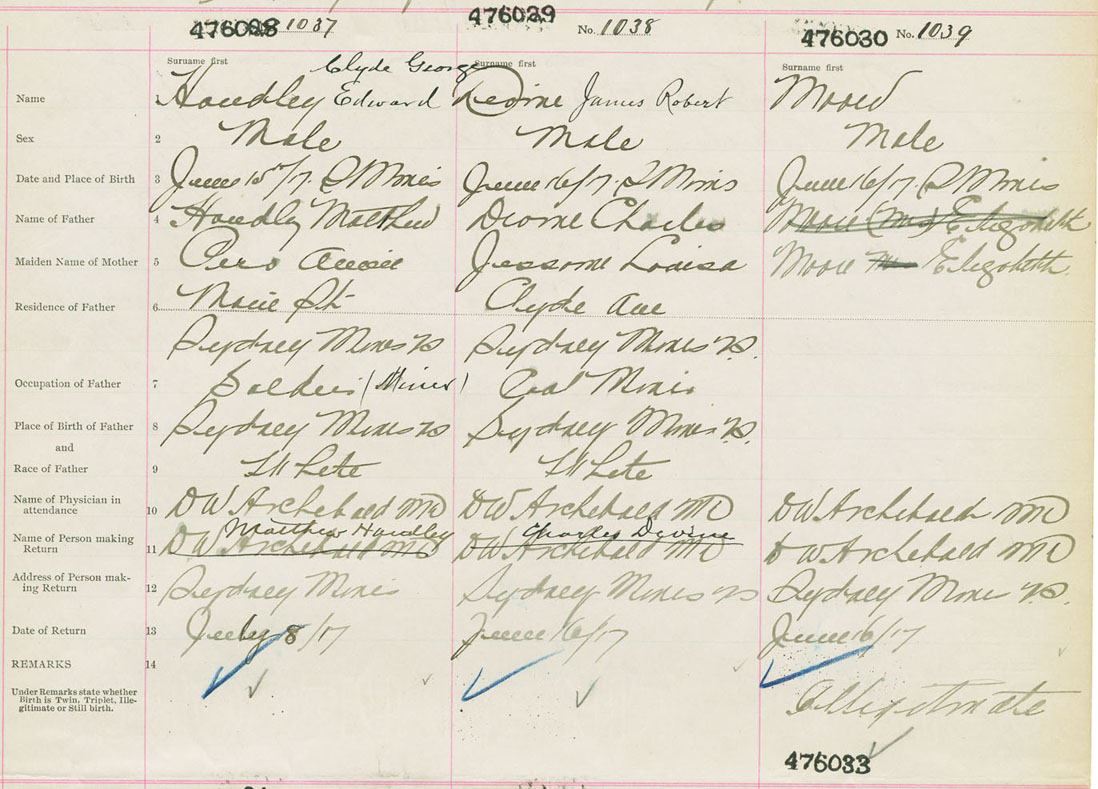 476028 1037 476029 No. 1038 476030 No. 1039
Surname first Clyde George Surname first Surname first
Name 1 Handley Edward Devine James Robert Moore
Sex 2 Male Male Male
Date and Place of Birth 3 June 15/17. S Mines June 16/17. S Mines June 16/17. S Mines
Name of Father 4 Handley Matthew Devine Charles Moore (Ms) Elizabeth
Maiden Name of Mother 5 Jessome Louisa Moore Elizabeth.
Residence of Father 6 St Clyde Ave
Sydney Mines NS Sydney Mines N.S.
Occupation of Father 7 Soldier (Miner) Coal Miner
Place of Birth of Father 8 Sydney Mines NS Sydney Mines N.S.
and
Race of Father 9 White White
Name of Physician in
attendance 10 DW Archibald MD DW Archibald MD DW Archibald MD
Matthew Handley Charles Devine
Name of Person making
Return 11 DW Archibald MD DW Archibald MD DW Archibald MD
Address of Person mak-
ing Return 12 Sydney Mines Sydney Mines NS Sydney Mines N.S.
Date of Return 13 July 8/17 June 16/17 June 16/17
REMARKS 14
Under Remarks state whether
Birth is Twin, Triplet, Ille-
gitimate or Still birth. Illegitimate
476033